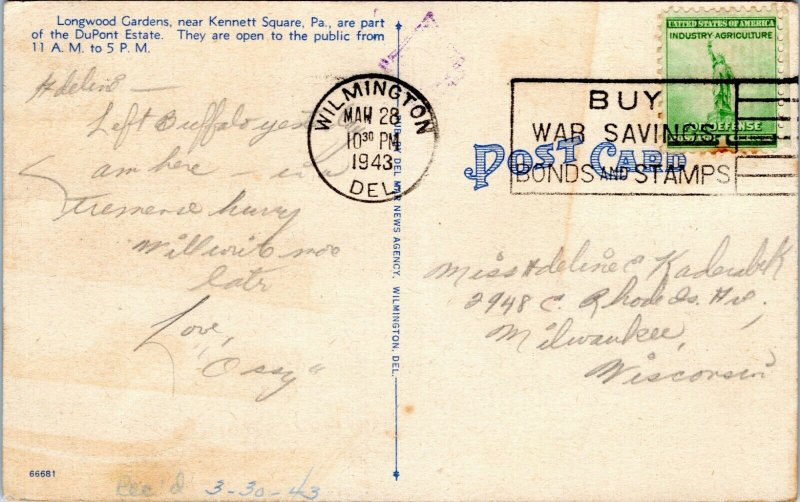 Longwood Gardens, near Kennett Square, Pa., are part
of the DuPont Estate. They are open to the public from
11 A. M. to 5 P. M.
Adeline —
Left Buffalo
am here — in a
hurry
Will write
Love,
"Ossy"
66681
Rec'd 3-30-43
DEL MAR NEWS AGENCY, WILMINGTON, DEL.
WILMINGTON
MAR 28
10 30 PM
1943
DEL.
UNITED STATES OF AMERICA
INDUSTRY-AGRICULTURE
FOR DEFENSE
BUY
WAR SAVINGS
BONDS AND STAMPS
POST CARD
Miss Adeline C Kaderabek
2948 S. Rhode Is. Av.
Milwaukee,
Wisconsin